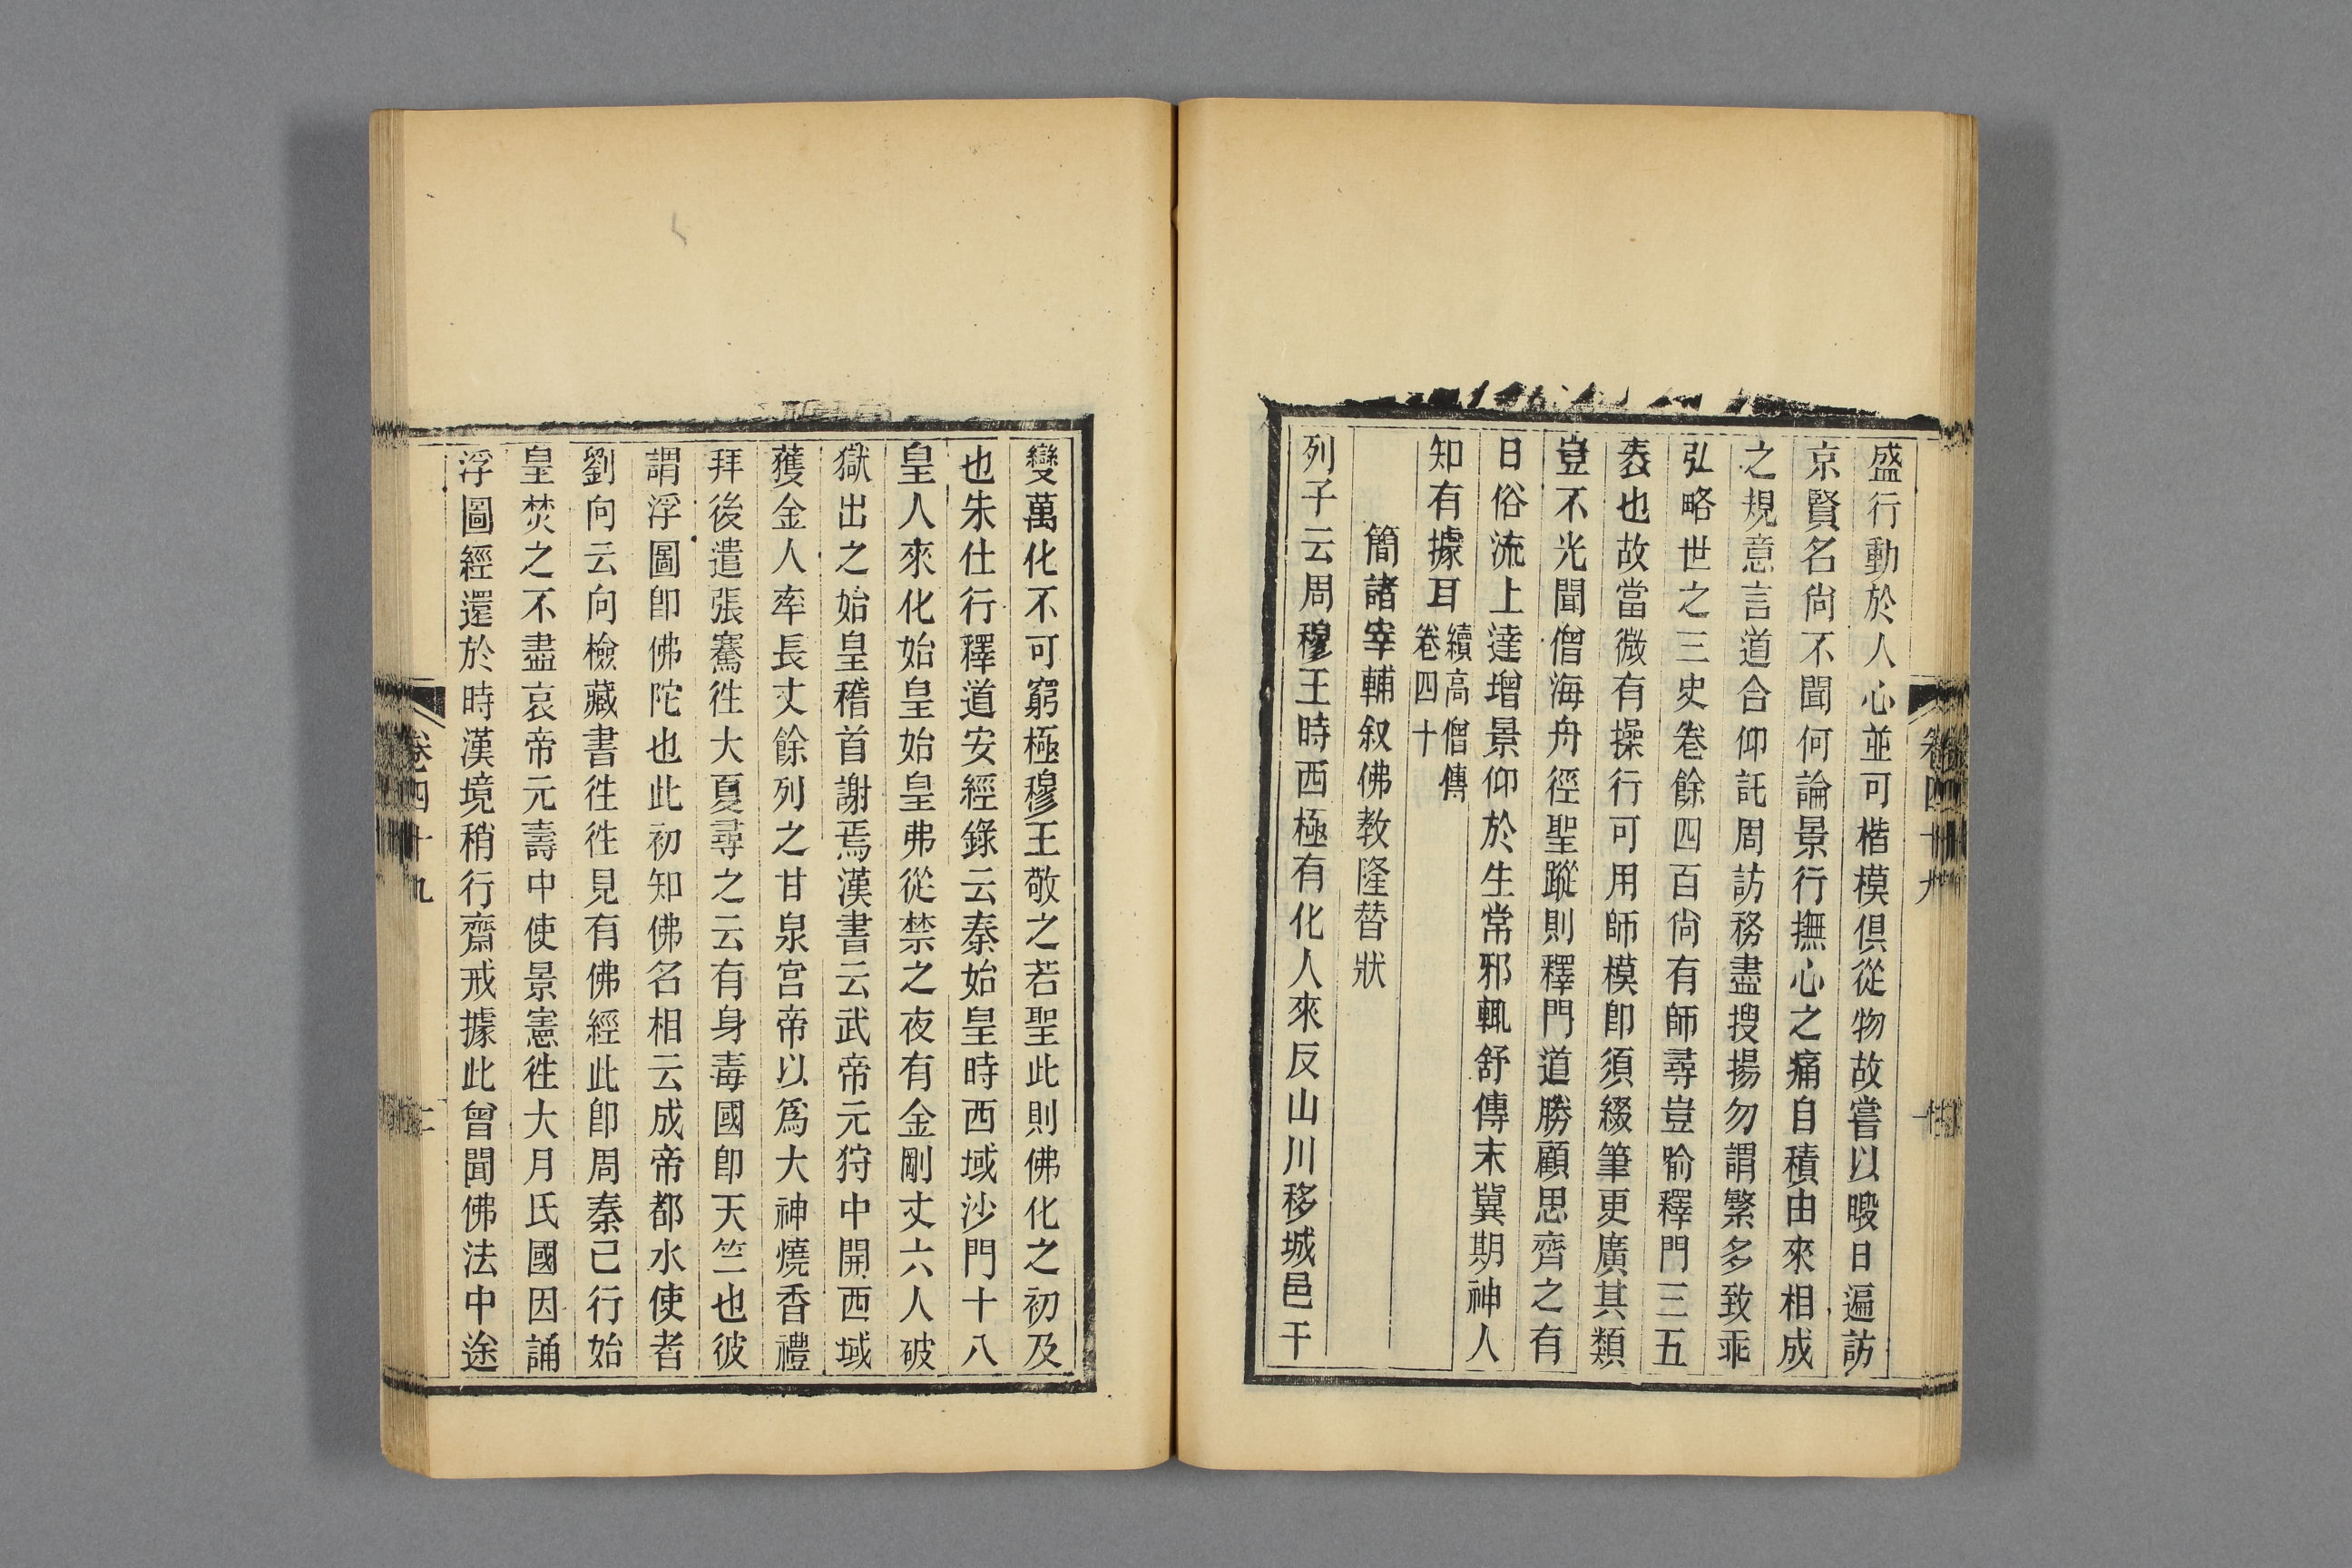 盛行動於人心並可楷模俱從物故嘗以暇日遍訪
京賢名尙不聞何論景行撫心之痛自積由來相成
之規意言道合仰託周訪務盡搜揚勿謂繁多致乖
弘略世之三史卷餘四百尙有師尋豈喻釋門三五
袠也故當微有操行可用師模卽須綴筆更廣其類
豈不光聞僧海舟徑聖蹤則釋門道勝顧思齊之有
日俗流上達增景仰於生常邪輒舒傳末冀期神人
知有據耳續高僧傳
卷四十
簡諸宰輔叙佛教隆替狀
列子云周穆王時西極有化人來反山川移城邑干
變萬化不可窮極穆王敬之若聖此則佛化之初及
也朱仕行釋道安經錄云秦始皇時西域沙門十八
皇人來化始皇始皇弗從禁之夜有金剛丈六人破
獄出之始皇稽首謝焉漢書云武帝元狩中開西域
獲金人率長丈餘列之甘泉宮帝以爲大神燒香禮
拜後遣張騫徃大夏尋之云有身毒國卽天竺也彼
謂浮圖卽佛陀也此初知佛名相云成帝都水使者
劉向云向檢藏書徃徃見有佛經此卽周秦已行始
皇焚之不盡哀帝元壽中使景憲徃大月氏國因誦
浮圖經還於時漢境稍行齋戒據此曾聞佛法中途
卷四十九
卷四十九
二